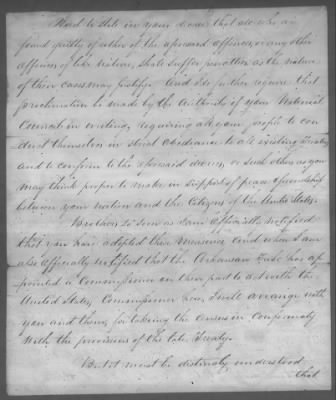 that to state in your decree that all who are
found guilty of either of the aforesaid offences, or any other
offences of like nature, shall suffer penalties as the nature
of their cases may justify. And I do further require that
proclamation be made by the authority of your National
Council in writing, requiring all your people to con
duct themselves in strict obedience to all existing treaties
and to conform to the aforesaid decrees, or such other as you
may think proper to make in support of peace & friendship
between your nation and the Citizens of the United States.
Brothers, so soon as I am officially notified
that you have adopted these measures and when I am
also officially notified that the Arkansas Tribe has ap
pointed a Commissioner on their part to act with the
United States, Commissioner I will arrange with
you and them, for taking the census in conformity
with the provisions of the late Treaty.
But it must be distinctly understood
that